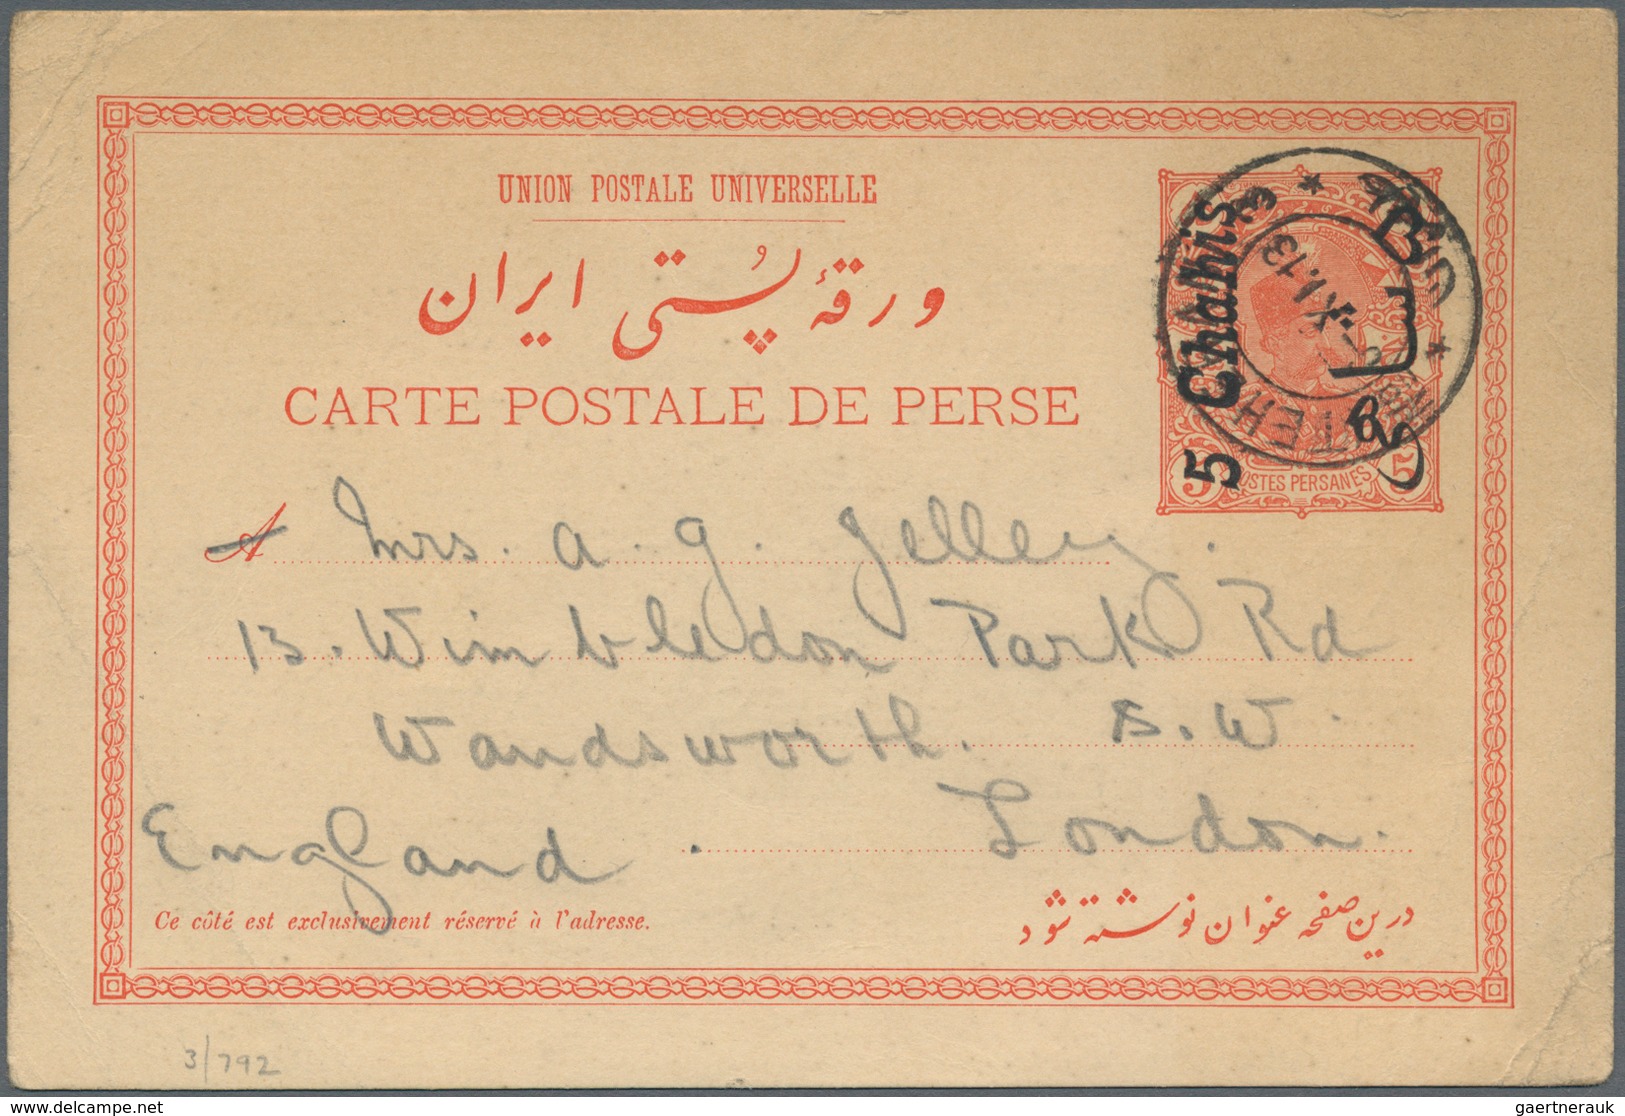 UNION POSTALE UNIVERSELLE
ورقهٔ پُستی ایران
CARTE POSTALE DE PERSE
5 Chahis
TEHERAN
5 POSTES PERSANES 5
A Mrs. A. G. Jelley.
13. Wimbledon Park Rd
Wandsworth. S.W.
London.
England.
Ce côté est exclusivement réservé à l'adresse.
درین صفحه عنوان نوشته شود
3/792
gaertnerauk